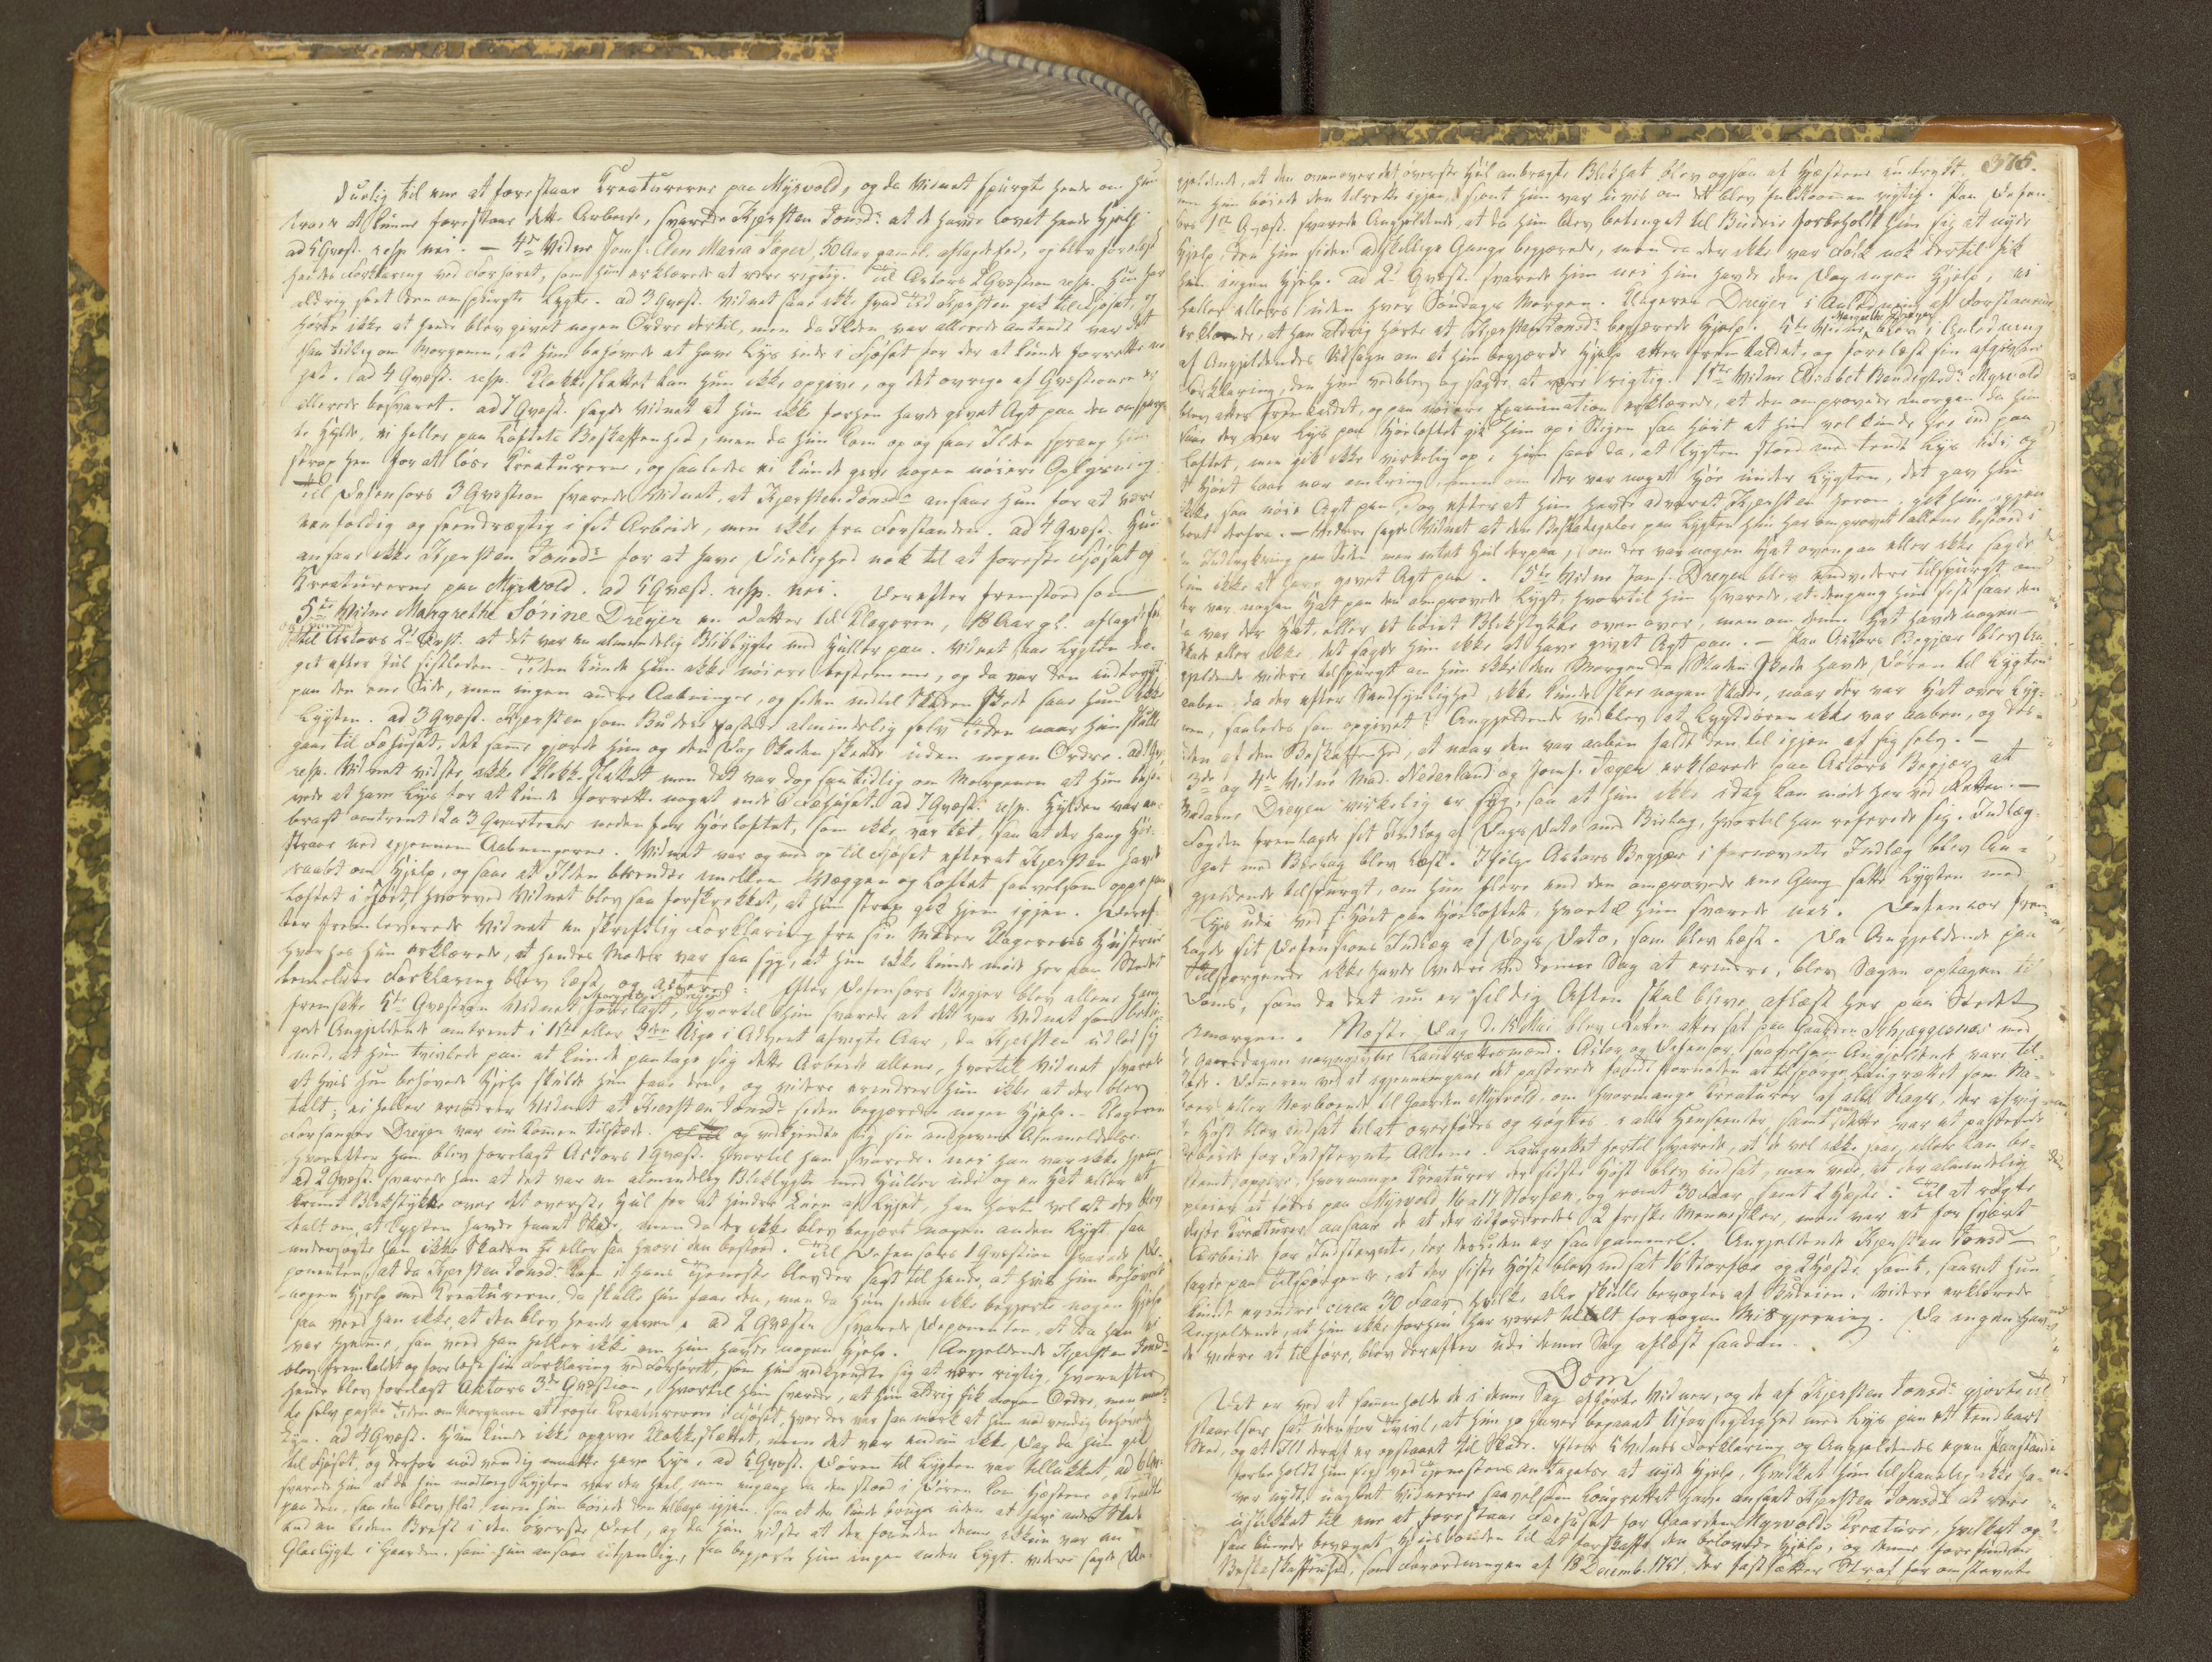 duelig til ene at forestaae Kreaturerne paa Myrvold, og da Vidnet spurgte hende om hun
troede at kunne forestaae dette Arbeide, svarede Kjersten Tonsd: at de havde lovet hende Hjelp.
ad 5 Qvæst. resp. nei. — 4de Vidne Jomf. Elen Maria Jæger, 50 Aar gamel, aflagde Eed, og blev forelæst
hendes Forklaring ved Forhøret, som hun erklærede at være rigtig. Til Actors 2 Qvæstion resp. Hun har
aldrig seet den omspurgte Lygte. ad 3 Qvæst. Vidnet saae ikke hvad Tid Kjersten gik til Fjøset, og
hørte ikke at hende blev givet nogen Ordre dertil, men da Ilden var allerede antendt var det
saa tidlig om Morgenen, at hun behøvede at have Lys inde i Fjøset for der at kunde forrette no-
get. ad 4 Qvæst. resp. Klokkeslettet kan hun ikke opgive, og det øvrige af Qvæstionen er
allerede besvaret. ad 7 Qvæst. sagde Vidnet at hun ikke forhen havde givet Agt paa den omspurg-
te Hylde, ei heller paa Loftets Beskaffenhed, men da hun kom op og saae Ilden sprang hun
strax hen for at løse Kreaturerne, og saaledes ei kunde give nogen nøiere Oplysning.
Til Defensors 3 Qvæstion svarede Vidnet, at Kjersten Tonsd: ansaae hun for at være
eenfoldig og seendrægtig i sit Arbeide, men ikke fra Forstanden. ad 4 Qvæst. Hun
ansaae ikke Kjersten Tonsd: for at have Duelighed nok til at forestaae Fjøset og
Kreaturerne paa Myrvold. ad 5 Qvæst. resp. nei. Derefter fremstod som
5te Vidne Margrethe Sørine Dreyer en Datter til Klageren, 18 Aar gl. aflagde Eed
og svarede
til Actors 2d Qvæst. at det var en almindelig Bliklygte med Huller paa. Vidnet saae Lygten no-
get efter Jul sistleden. Tiden kunde hun ikke nøiere bestemme, og da var den indtrygt
paa den ene Side, men ingen andre Aabninger, og siden indtil Skaden skede saae hun ikke
Lygten. ad 3 Qvæst. Kjersten som Budeie passede almindelig selv Tiden naar hun skulle
gaae til Fæhuset, det samme gjorde hun og den Dag Skaden skedte uden nogen Ordre. ad 4 Qv.
resp. Vidnet vidste ikke Klokkeslettet men det var dog saa tidlig om Morgenen at hun behø-
vede at have Lys for at kunde forrette noget inde i Fæhuset. ad 7 Qvæst. resp. Hylden var an-
bragt omtrent 2 a 3 Qvarteer neden for Høeloftet, som ikke var tæt, saa at der hang Høe-
straae ned igjennem Aabningerne. Vidnet var og med op til Fjøset efterat Kjersten havde
raabt om Hjelp, og saae at Ilden brendte imellem Væggen og Loftet saavelsom oppe paa
Loftet i Høet, hvorved Vidnet blev saa forskrekket, at hun strax gik hjem igjen. Deref-
ter fremleverede Vidnet en skriftlig Forklaring fra sin Moder Klagerens Hustrue
hvorhos hun erklærede, at hendes Moder var saa syg, at hun ikke kunde møde her paa Stedet
bemeldte Forklaring blev læst og acteret: Efter Defensors Begjer blev allene ham
Margrethe Dreyer
fremsatte 5te Qvæstion Vidnet forelagt, hvortil hun svarede at det var Vidnet som betin-
gede Angjeldende omtrent i 1ste eller 2den Uge i Advent afvigte Aar, da Kjersten udlod sig
med, at hun tvivlede paa at kunde paatage sig dette Arbeide allene, hvortil Vidnet svarede
at hvis hun behøvede Hjelp skulde hun faae den, og videre erindrer hun ikke at der blev
talt; ei heller erindrer Vidnet at Kjersten Tonsd: siden begjerede nogen Hjelp. — Klageren
Forfanger Dreyer var nu kommen tilstæde. og vedkjendte sig sin indgivne Anmeldelse
hvorefter ham blev forelagt Actors 1 Qvæst. hvortil han svarede. nei han var ikke hjemme
ad 2 Qvæst. svarede han at det var en almindelig Bliklygte med Huller udi og en Hat eller et
krumt Blikstykke over det øverste Hul for at hindre Luen af Lyset, han hørte vel at der blev
talt om, at Lygten havde faaet Skade, men da der ikke blev begjert nogen anden Lygt saa
undersøgte han ikke Skaden ei eller saa hvori den bestod. Til Defensors 1 Qvæstion svarede De-
ponenten, at da Kjersten Tonsd: kom i hans Tjeneste blev der sagt til hende, at hvis hun behøvede
nogen Hjelp med Kreaturerne, da skulle hun faae den, men da hun siden ikke begjerte nogen Hjelp
saa veed han ikke, at den blev hende given. ad 2 Qvæstion svarede Deponenten, at da han ei
var hjemme, saa veed han heller ikke om hun havde nogen Hjelp. Angjeldende Kjersten Tonsd:
blev fremkaldet og forelæst sin Forklaring ved Forhøret, som hun vedkjendte sig at være rigtig, hvorefter
hende blev forelagt Aktors 3die Qvæstion, hvortil hun svarede, at hun aldrig fik nogen Ordre, men maat-
te selv passe Tiden om Morgenen at røgte Kreaturerne i Fjøset, hvor der var saa mørk at hun nødvendig behøvede
Lys. ad 4 Qvæst. Hun kunde ikke opgive Klokkeslettet, men det var endnu ikke Dag da hun gik
til Fjøset, og derfor nødvendig maatte have Lys. ad 5 Qvæst. Døren til Lygten var tillukket, ad 6
svarede hun at da hun modtog Lygten var den heel, men engang da den stod i Døren kom Hæstene og traadte
paa den, saa den blev flad, men hun bøiede den tilbage igjen, saa at den kunde bruges uden at have anden Skade
end en liden Brøst i den øverste Deel, og da hun vidste at der foruden denne ikkun var en
Glaslygte i Gaarden, som hun ansaae utjenlig, saa begjerte hun ingen anden Lygt. videre sagde An-
375.
gjeldende, at den ovenover det øverste Hul anbragte Blikhat blev ogsaa af Hæstene indtrykt,
men hun bøiede den tilrette igjen, skjønt hun var uvis om det blev fuldkommen rigtig. Paa Defen-
sors 1ste Qvæst. svarede Angjeldende, at da hun blev betinget til Budeie forbeholdt hun sig at nyde
Hjelp, den hun siden adskillige Gange begjærede, men da der ikke var Folk nok dertil fik
hun ingen Hjelp. ad 2d Qvæst. svarede hun nei hun havde den Dag ingen Hjelp, ei
heller ellers uden hver Søndags Morgen. Klageren Dreyer i Anledning af Forklaringen
Margrethe Dreyer
erklærede, at han aldrig hørte at Kjersten Tonsd: begjærede Hjelp. 5te Vidne blev i Anledning
af Angjeldendes Udsagn om at hun begjærede Hjelp atter fremkaldet, og forelæst sin afgivne
Forklaring, den hun vedblev og sagde, at være rigtig. 1ste Vidne Elisabet Bendixsd: Myrvold
blev atter fremkaldet, og paa nøiere Examination erklærede, at den omprovede Morgen da hun
saae der var Lys paa Høeloftet gik hun op i Stigen saa høit at hun vel kunde see ind paa
Loftet, men gik ikke virkelig op, hun saae da, at Lygten stod med tendt Lys udi og
at Høet laae nær omkring, men om der var noget Høe under Lygten, det gav hun
ikke saa nøie Agt paa, dog efterat hun havde advaret Kjersten herom, gik hun igjen
bort derfra. — Videre sagde Vidnet at den Beskadigelse paa Lygten hun har omprovet allene bestod i
en Indtrykning paa Siden men intet Hul derpaa, om der var nogen Hat ovenpaa eller ikke sagde
hun ikke at have givet Agt paa. 5te Vidne Jomf. Dreyer blev endvidere tilspurgt om
der var nogen Hat paa den omprovede Lygt, hvortil hun svarede, at dengang hun sist saae den
da var der Hat, eller et bøiet Blikstykke oven over, men om denne Hat havde nogen
Skade eller ikke, det sagde hun ikke at have givet Agt paa. — Paa Actors Begjær blev An-
gjeldende videre tilspurgt om hun ikke den Morgen da Skaden skede havde Døren til Lygten
aaben, da der efter Sandsynlighed, ikke kunde skee nogen Skade, naar der var Hat over Lyg-
ten, saaledes som opgivet? Angjeldende vedblev at Lygtdøren ikke var aaben, og des-
uden af den Beskaffenhed, at naar den var aaben faldt den til igjen af sig selv. —
3de og 4de Vidne Mad. Nederland og Jomf. Jæger erklærede paa Actors Begjær at
Madame Dreyer virkelig er syg, saa at hun ikke i dag kan møde her ved Retten. —
Fogden fremlagde sit Indlæg af Dags Dato med Bielag, hvortil han refererede sig. Indlæg-
get med Bielag blev læst. Ifølge Actors Begjær i fornævnte Indlæg blev An-
gjeldende tilspurgt, om hun flere end den omprovede ene Gang satte Lygten med
Lys udi ved Høet paa Høeloftet, hvortil hun svarede nei. Defensor frem-
lagde sit Defensions Indlæg af Dags Dato, som blev læst. Da Angjeldende paa
Tilspørgende ikke havde videre ved denne Sag at erindre, blev Sagen optagen til
Doms, som da det nu er sildig Aften skal blive aflæst her paa Stedet
imorgen. Næste Dag d. 15 Mai blev Retten atter sat paa Gaarden Schjæggesnæs med
de Gaarsdagen navngivne Laugrættesmænd. Actor og Defensor saavelsom Angjeldende vare til-
stæde. Dommeren ved at igjennemgaae det passerede fandt fornøden at tilspørge Laugrættet som Na-
boer eller Nærboende til Gaarden Myrvold, om hvormange Kreaturer af alle Slags, der afvig-
te Høst blev indsat til at overfødes og røgtes i alle Henseender, samt om dette var et passende
Arbeide for Indstevnte Allene. Laugrettet hertil svarede, at de vel ikke saae, eller kan be-
stemt opgive, hvormange Kreaturer der sidste Høst blev indsat, men veed, at der almindelig
pleier at fødes paa Myrvold 16 a 17 Storfæe, og samt 30 Faar, samt 2 Heste. Til at røgte
disse Kreaturer ansaae de at der udfordredes 2 friske Mennesker, men var et for svært
Arbeide for Indstevnte, der desuden er saa gammel. Angjeldende Kjersten Tonsd:
sagde paa Tilspørgende, at der sidste Høst blev indsat 16 Storfæe og 2 Heste samt, saavidt hun
kunde erindre circa 30 Faar, hvilke alle skulle berøgtes af Budeien. Videre erklærede
Angjeldende, at hun ikke forhen har været tiltalt for nogen Misgjerning. Da ingen hav-
de videre at tilføre, blev derefter udi denne Sag aflæst saadan
Dom
Det er ved at sammenholde de i denne Sag afhørte Vidner, og de af Kjersten Tonsd: gjorte Til-
staaelser sat udenfor Tvivl, at hun jo haver begaaet Uforsigtighed med Lys paa et tendbart
Sted, og at Ild deraf er opstaaet til Skade. Efter 5 Vidnes Forklaring og Angjeldendes egen Paastand
forbeholdt hun sig ved Tjenestens Antagelse at nyde Hjelp, hvilket hun tilstrækkelig ikke ha-
ver nydt, uagtet Vidnerne saavelsom Laugrettet have anseet Kjersten Tonsd: at være
uskikket til ene at forestaae Fæehuset for Gaarden Myrvolds Kreature, hvilket og-
saa burde bevæget Huusbonden til at forskaffe den belovede Hjelp, og denne forefundne
Beskaffenhed, som Forordningen af 18 Decemb. 1751 der fastsætter Straf for omstevnte